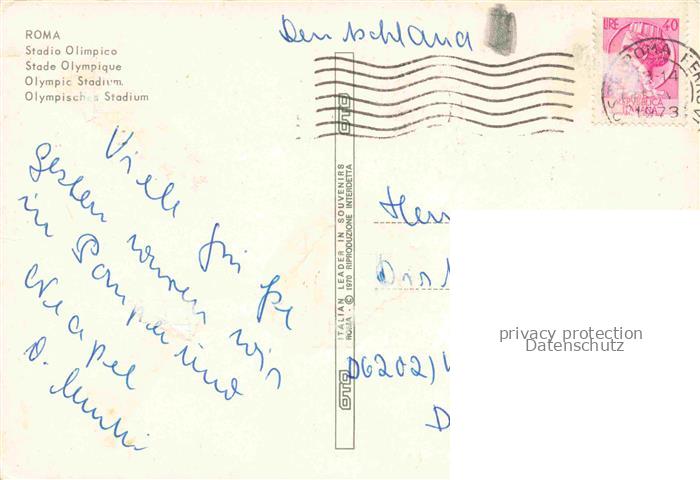 ROMA
Stadio Olimpico
Stade Olympique
Olympic Stadium.
Olympisches Stadium
Deutschland
LIRE 40
ROMA FERR
1973
Viele
Gestern waren wir
in Pompei und
Neapel
OTO
ITALIAN LEADER IN SOUVENIRS
ROMA - © 1970 RIPRODUZIONE INTERDETTA
OTO
Herr
Dir
D6202)
D
privacy protection
Datenschutz